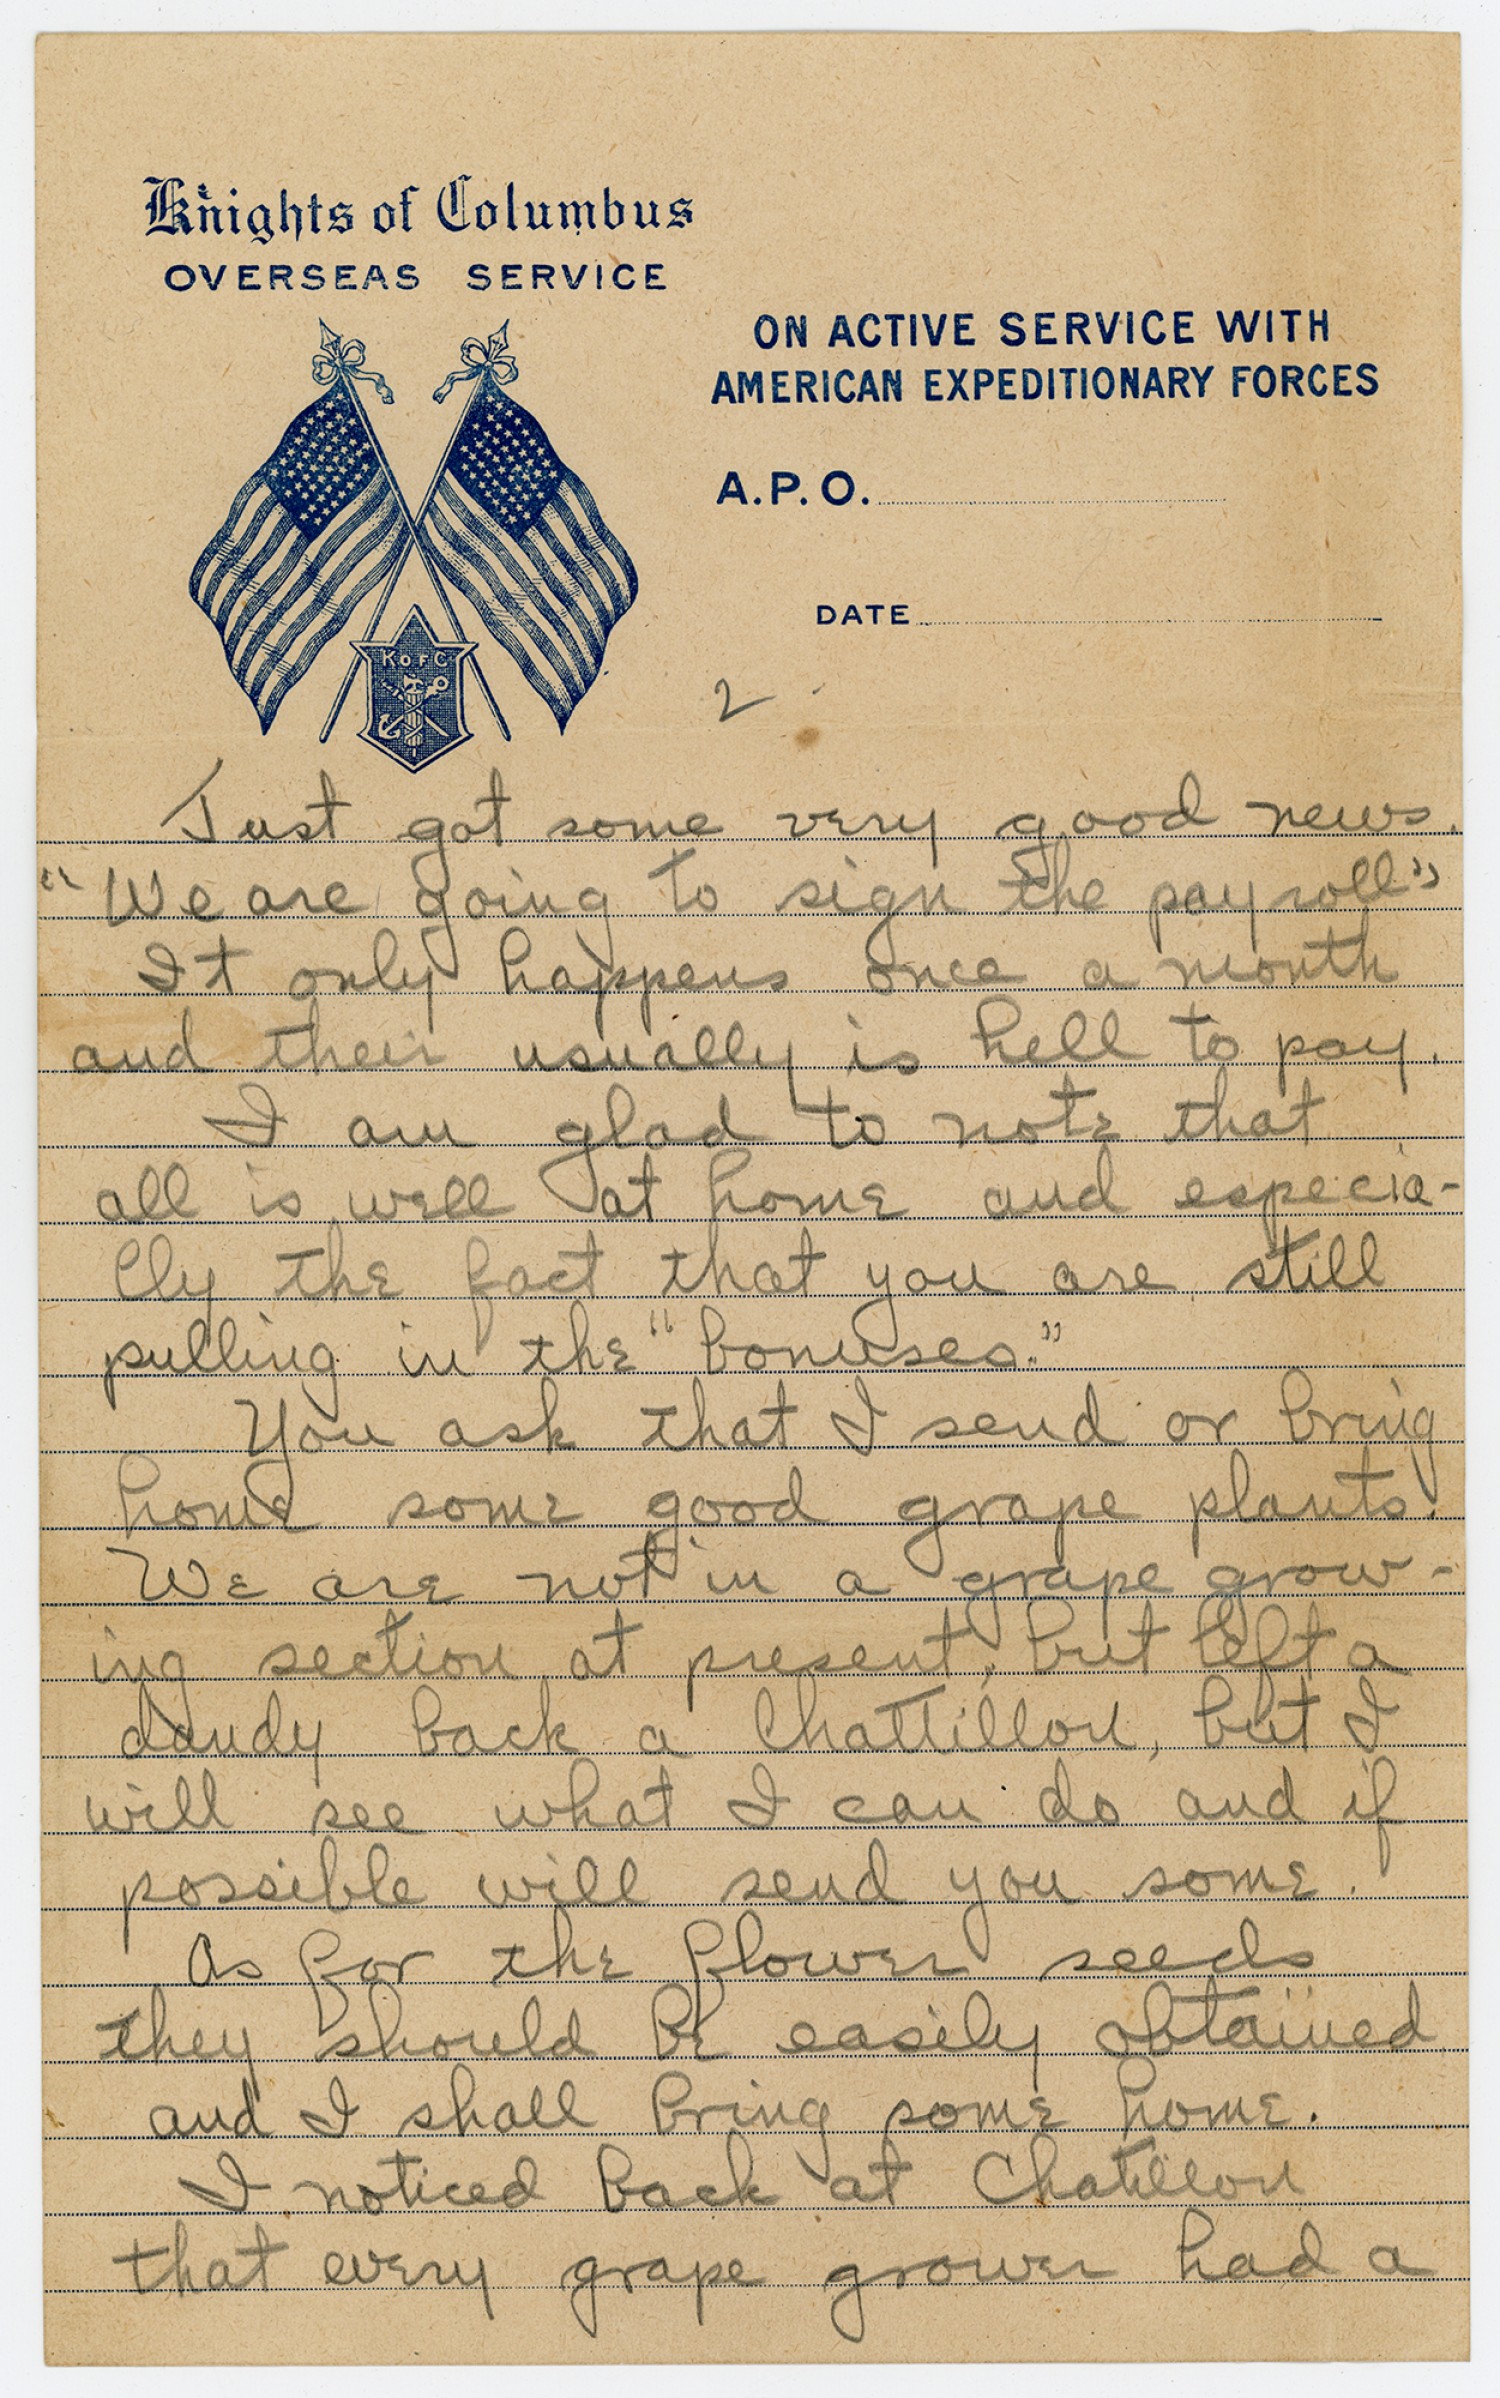 Knights of Columbus
OVERSEAS SERVICE
ON ACTIVE SERVICE WITH
AMERICAN EXPEDITIONARY FORCES
A.P.O.
DATE
K of C
2
Just got some very good news.
"We are going to sign the payroll"
It only happens once a month
and their usually is hell to pay.
I am glad to note that
all is well at home and especia-
lly the fact that you are still
pulling in the "bonuses."
You ask that I send or bring
home some good grape plants.
We are not in a grape grow-
ing section at present, but left a
dandy back a Chattillon, but I
will see what I can do and if
possible will send you some.
As for the flower seeds
they should be easily obtained
and I shall bring some home.
I noticed back at Chatillon
that every grape grower had a